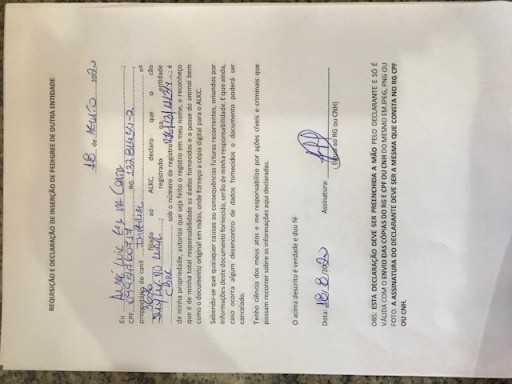 REQUISIÇÃO E DECLARAÇÃO DE INSERÇÃO DE PEDIGREE DE OUTRA ENTIDADE
18 de 2020
Eu
CPF RG
proprietário do canil nº
filiado ao ALKC, declaro que o cão
registrado na entidade
sob o número de registro é
de minha propriedade, autorizo que seja feito o registro em meu nome, e reconheço
que é de minha total responsabilidade os dados fornecidos e a posse do animal bem
como o documento original em mãos, onde forneço a cópia digital para o ALKC.
Sabendo-se que quaisquer causas ou consequências futuras recorrentes, oriundos por
informações deste documento fornecido, serão de minha responsabilidade. E que ainda,
caso ocorra algum desencontro de dados fornecidos o documento poderá ser
cancelado.
Tenho ciência dos meus atos e me responsabilizo por ações cíveis e criminais que
possam recorrer sobre as informações aqui declaradas.
O acima descrito é verdade e dou fé
Data: 18. 8. 2020 Assinatura:
(igual ao RG ou CNH)
OBS: ESTA DECLARAÇÃO DEVE SER PREENCHIDA A MÃO PELO DECLARANTE E SÓ É
VÁLIDA COM O ENVIO DAS CÓPIAS DO RG E CPF OU CNH DO MESMO EM JPEG, PNG OU
FOTO. A ASSINATURA DO DECLARANTE DEVE SER A MESMA QUE CONSTA NO RG CPF
OU CNH.